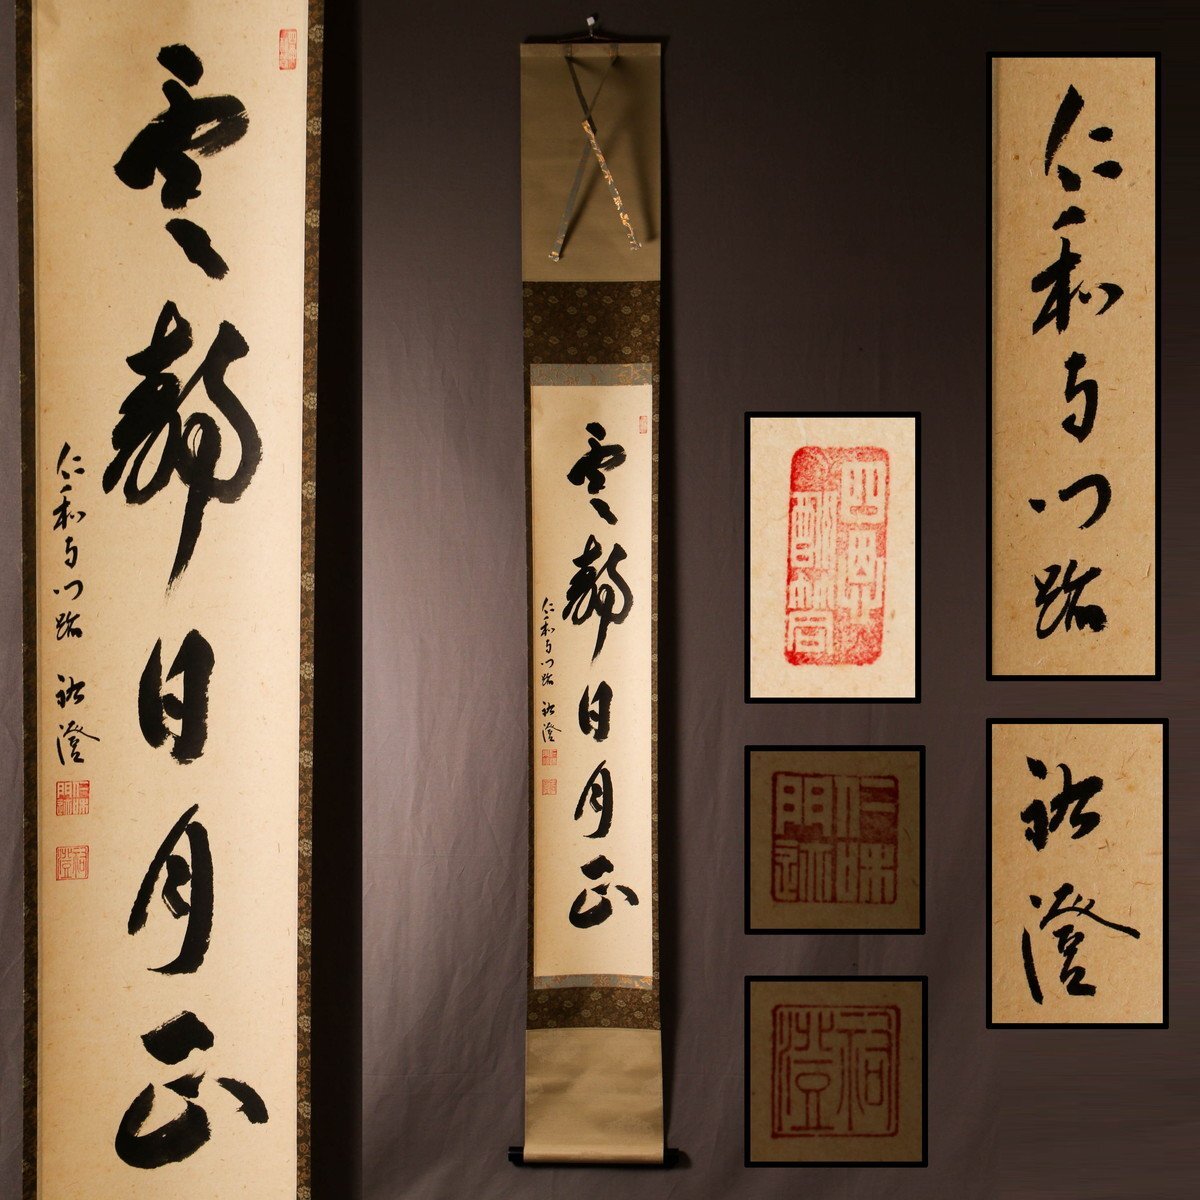 雲静日月正
仁和寺門跡 祐澄
仁咊
門迹
祐澄
雲静日月正
仁和寺門跡 祐澄
仁咊
門迹
祐澄
仁和寺門跡
祐澄